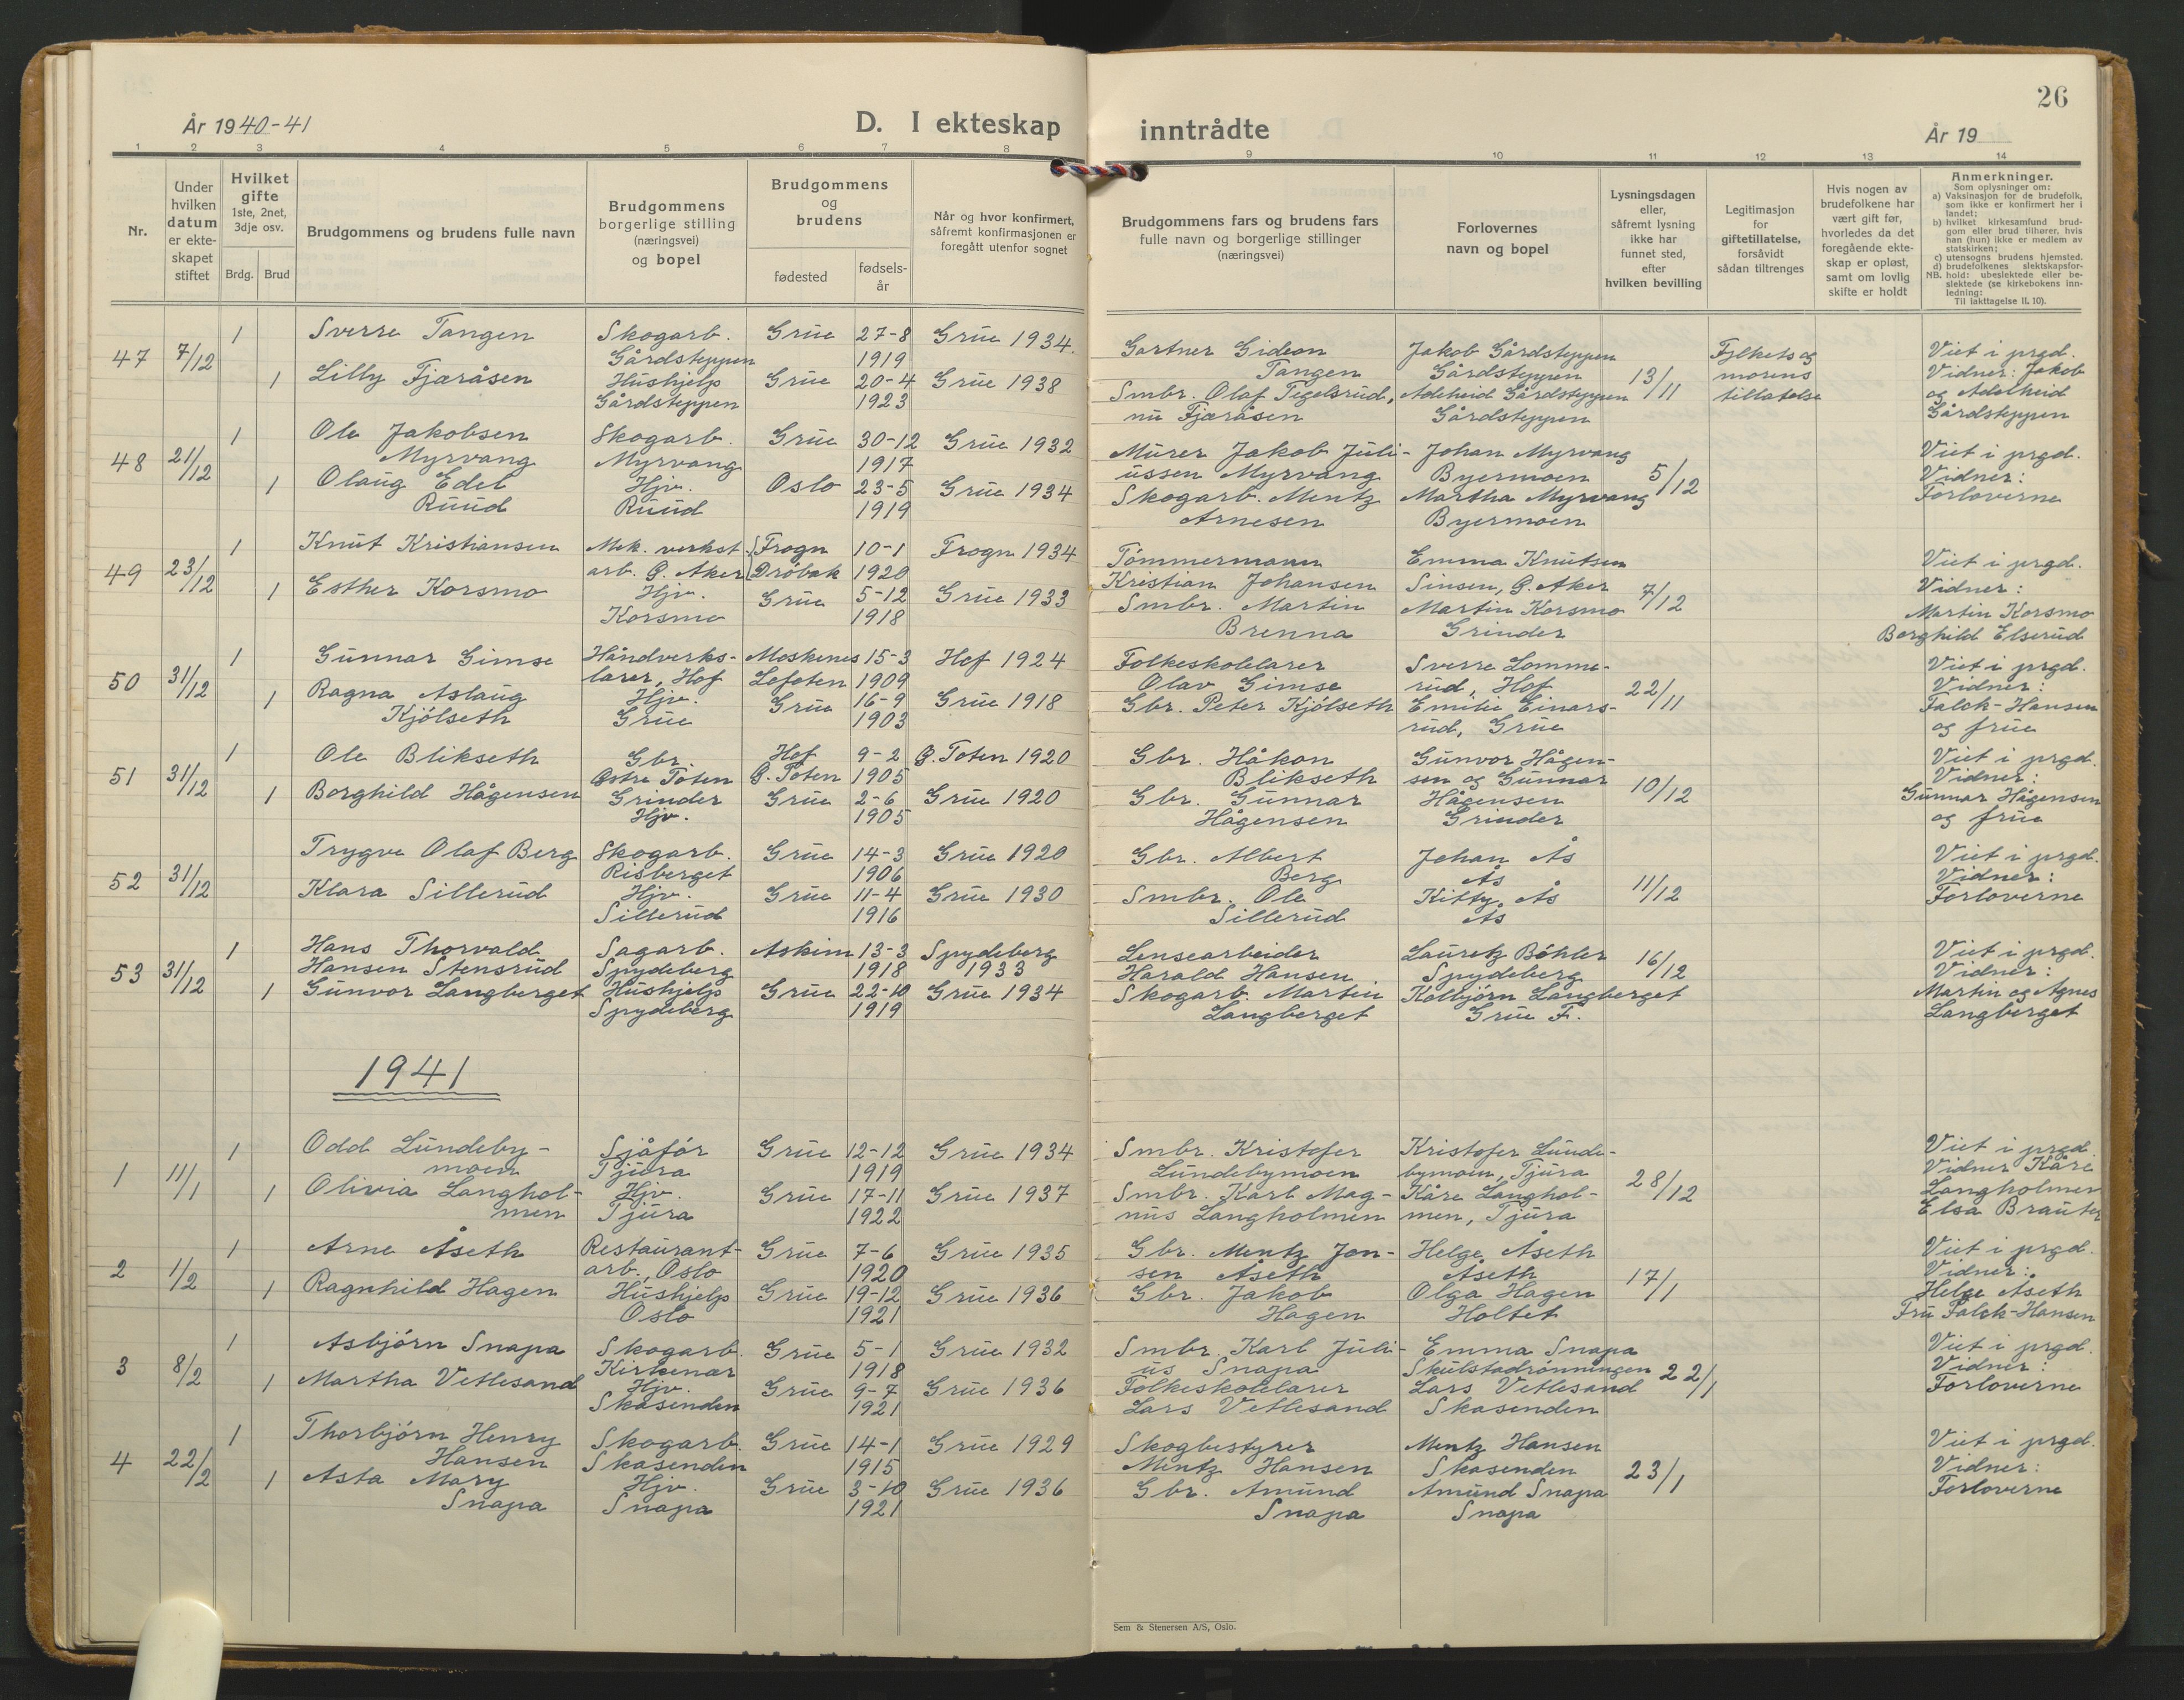 26
År 1940-41
D. I ekteskap inntrådte
År 19
1 2 3 4 5 6 7 8 9 10 11 12 13 14
Nr.
Under
hvilken
datum
er ekte-
skapet
stiftet
Hvilket
gifte
1ste, 2net,
3dje osv.
Brdg. Brud
Brudgommens og brudens fulle navn
Brudgommens
borgerlige stilling
(næringsvei)
og bopel
Brudgommens
og
brudens
fødested
fødsels-
år
Når og hvor konfirmert,
såfremt konfirmasjonen er
foregått utenfor sognet
Brudgommens fars og brudens fars
fulle navn og borgerlige stillinger
(næringsvei)
Forlovernes
navn og bopel
Lysningsdagen
eller,
såfremt lysning
ikke har
funnet sted,
efter
hvilken bevilling
Legitimasjon
for
giftetillatelse,
forsåvidt
sådan tiltrenges
Hvis nogen av
brudefolkene har
vært gift før,
hvorledes da det
foregående ekte-
skap er opløst,
samt om lovlig
skifte er holdt
Anmerkninger.
Som oplysninger om:
a) Vaksinasjon for de brudefolk,
som ikke er konfirmert her i
landet;
b) hvilket kirkesamfund brud-
gom eller brud tilhører, hvis
han (hun) ikke er medlem av
statskirken;
c) utensogns brudens hjemsted.
d) brudefolkenes slektskapsfor-
NB. hold: ubeslektede eller be-
slektede (se kirkebokens inn-
ledning:
Til iakttagelse II. 10).
47 7/12 1 Sverre Tangen Skogarb. Grue 27-8 Grue 1934. Gartner Gideon Jakob Gårdsteppen Fylkets og Viet i prgd.
Gårdsteppen 1919 Tangen Gårdsteppen 13/11 morens Vidner: Jakob
1 Lilly Fjæråsen Hushjelp Grue 20-4 Grue 1938 Smbr. Olaf Tegelsrud, Adeheid Gårdsteppen tillatelse og Adelheid
Gårdsteppen 1923 nu Fjæråsen Gårdsteppen Gårdsteppen
48 21/12 1 Ole Jakobsen Skogarb. Grue 30-12 Grue 1932 Murer Jakob Juli- Johan Myrvang Viet i prgd.
Myrvang Myrvang 1917 ussen Myrvang Byermoen 5/12 Vidner:
1 Olaug Edel Hjv. Oslo 23-5 Grue 1934 Skogarb. Mentz Martha Myrvang Forloverne
Ruud Ruud 1919 Arnesen Byermoen
49 23/12 1 Knut Kristiansen Mek. verkst. Frogn 10-1 Frogn 1934 Tömmermann Emma Knutsen Viet i prgd.
arb. Ö. Aker Dröbak 1920 Kristian Johansen Sinsen, Ö. Aker 7/12 Vidner:
1 Esther Korsmo Hjv. Grue 5-12 Grue 1933 Smbr. Martin Martin Korsmo Martin Korsmo
Korsmo 1918 Brenna Grinder Borghild Elserud
50 31/12 1 Gunnar Gimse Håndverks- Moskenes 15-3 Hof 1924 Folkeskolelærer Sverre Lomme- Viet i prgd.
lærer, Hof Lofoten 1909 Olav Gimse rud, Hof 22/11 Vidner:
1 Ragna Aslaug Hjv. Grue 16-9 Grue 1918 Gbr. Peter Kjölseth Emilie Einars- Falck-Hansen
Kjölseth Grue 1903 rud, Grue og frue
51 31/12 1 Ole Blikseth Gbr. Hof 9-2 Ö. Toten 1920 Gbr. Håkon Gunvor Hågen- Viet i prgd.
Östre Toten Ö. Toten 1905 Blikseth sen og Gunnar 10/12 Vidner:
1 Borghild Hågensen Grinder Grue 2-6 Grue 1920 Gbr. Gunnar Hågensen Gunnar Hågensen
Hjv. 1905 Hågensen Grinder og frue
52 31/12 Trygve Olaf Berg Skogarb. Grue 14-3 Grue 1920 Gbr. Albert Johan Ås Viet i prgd.
Risberget 1906 Berg Ås 11/12 Vidner:
Klara Sillerud Hjv. Grue 11-4 Grue 1930 Smbr. Ole Kitty Ås Forloverne
Sillerud 1916 Sillerud Ås
53 31/12 1 Hans Thorvald Sagarb. Askim 13-3 Spydeberg Lensearbeider Lauretz Böhler 16/12 Viet i prgd.
Hansen Stensrud Spydeberg 1918 1933 Harald Hansen Spydeberg Vidner:
1 Gunvor Langberget Hushjelp Grue 22-10 Grue 1934 Skogarb. Martin Kolbjörn Langberget Martin og Agnes
Spydeberg 1919 Langberget Grue F. Langberget
1941
1 11/1 1 Odd Lundeby- Sjåför Grue 12-12 Grue 1934 Smbr. Kristofer Kristofer Lunde- Viet i prgd.
moen Tjura 1919 Lundebymoen bymoen, Tjura 28/12 Vidner Kåre
1 Olivia Langhol- Hjv. Grue 17-11 Grue 1937 Smbr. Karl Mag- Kåre Langhol- Langholmen
men Tjura 1922 nus Langholmen men, Tjura Elsa Bråuter
2 1/2 1 Arne Åseth Restaurant- Grue 7-6 Grue 1935 Gbr. Mentz Jon- Helge Åseth Viet i prgd.
arb., Oslo 1920 sen Åseth Åseth 17/1 Vidner:
1 Ragnhild Hagen Hushjelp Grue 19-12 Grue 1936 Gbr. Jakob Olga Hagen Helge Åseth
Oslo 1921 Hagen Holtet Fru Falck-Hansen
3 8/2 1 Asbjörn Snapa Skogarb. Grue 5-1 Grue 1932 Smbr. Karl Juli- Emma Snapa Viet i prgd.
Kirkenær 1918 us Snapa Skulstadrönningen 22/1 Vidner:
1 Martha Vetlesand Hjv. Grue 9-7 Grue 1936 Folkeskolelærer Lars Vetlesand Forloverne
Skasenden 1921 Lars Vetlesand Skasenden
4 22/2 1 Thorbjörn Henry Skogarb. Grue 14-1 Grue 1929 Skogbestyrer Mentz Hansen Viet i prgd.
Hansen Skasenden 1915 Mentz Hansen Skasenden 23/1 Vidner:
1 Asta Mary Hjv. Grue 3-10 Grue 1936 Gbr. Amund Amund Snapa Forloverne
Snapa Snapa 1921 Snapa Snapa
Sem & Stenersen A/S, Oslo.